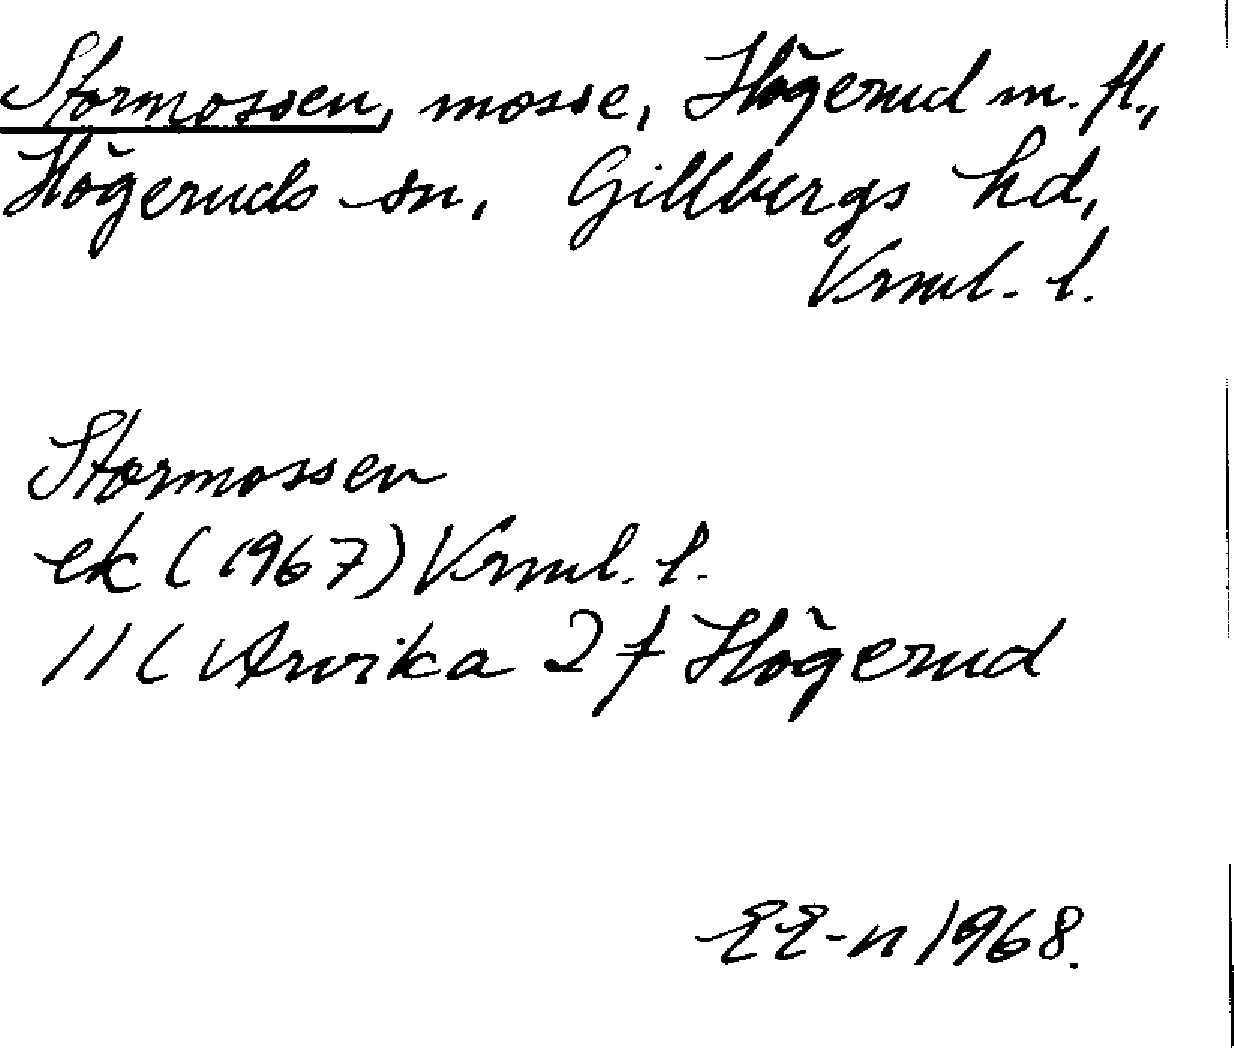 Stormossen, mosse, Högerud m. fl.,
Högeruds sn, Gillbergs hd,
Vrml. l.
Stormossen
ek (1967) Vrml. l.
11C Arvika 2f Högerud
EE-n 1968.